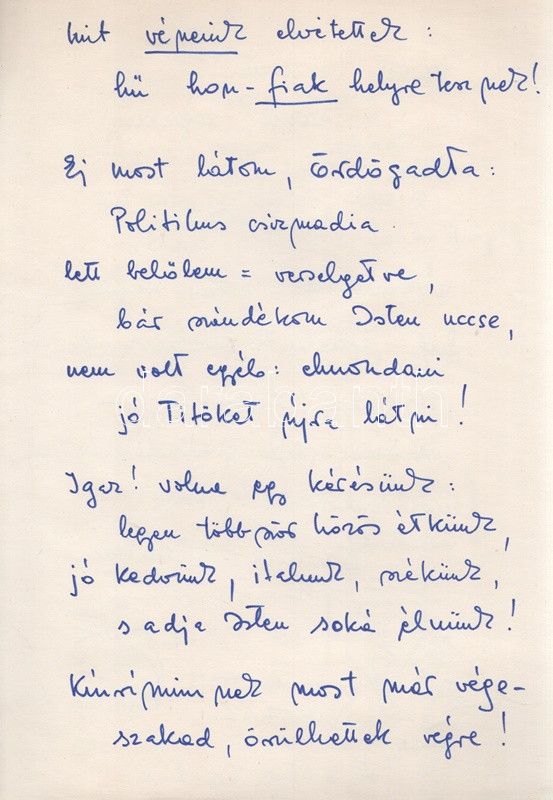 mit véneink elvétettek :
hű hon-fiak helyre tesznek!
Ej most látom, Ördögadta :
Politikus csizmadia
lett belőlem = verselgetve,
bár szándékom Isten uccse,
nem volt egyéb : elmondani
jó Titöket újra látni !
Igaz! volna egy kérésünk :
legyen többször közös étkünk,
jó kedvünk, italunk, nékünk,
s adja Isten soká élnünk !
Kínrímünknek most már vége-
szakad, örülhettek végre !
darabanth